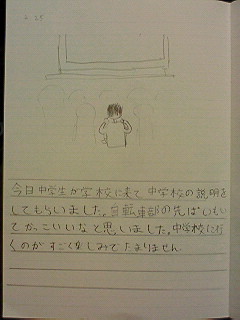 2.25
今日中学生が学校に来て中学校の説明を
してもらいました。自転車部の先ぱいもい
てかっこいいなと思いました。中学校に行
くのがすごく楽しみでたまりません